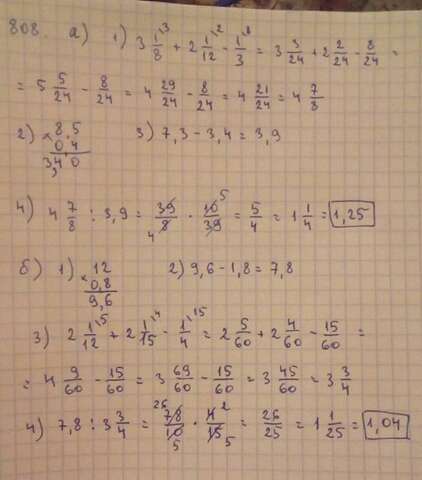 808. а) 1) 3 1/8 + 2 1/12 - 1/3 = 3 3/24 + 2 2/24 - 8/24 =
= 5 5/24 - 8/24 = 4 29/24 - 8/24 = 4 21/24 = 4 7/8
2) × 8,5 3) 7,3 - 3,4 = 3,9
0 4
3,4,0
4) 4 7/8 : 3,9 = 39/8 · 10/39 = 5/4 = 1 1/4 = 1,25
б) 1) × 12 2) 9,6 - 1,8 = 7,8
0,8
9,6
3) 2 1/12 + 2 1/15 - 1/4 = 2 5/60 + 2 4/60 - 15/60 =
= 4 9/60 - 15/60 = 3 69/60 - 15/60 = 3 45/60 = 3 3/4
4) 7,8 : 3 3/4 = 78/10 · 4/15 = 26/25 = 1 1/25 = 1,04